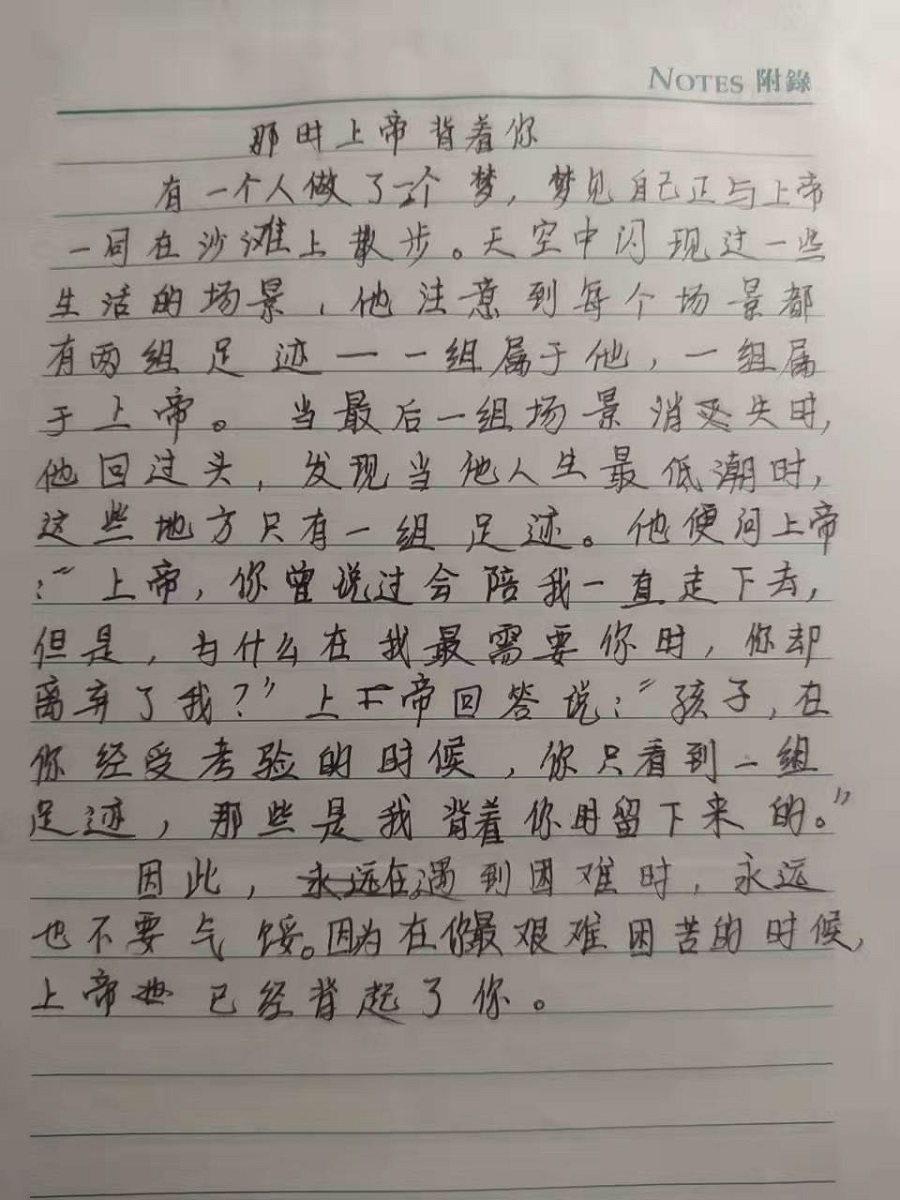 NOTES 附錄
那时上帝背着你
有一个人做了一个梦，梦见自己正与上帝
一同在沙滩上散步。天空中闪现过一些
生活的场景，他注意到每个场景都
有两组足迹——一组属于他，一组属
于上帝。当最后一组场景消失时，
他回过头，发现当他人生最低潮时，
这些地方只有一组足迹。他便问上帝
：“上帝，你曾说过会陪我一直走下去，
但是，为什么在我最需要你时，你却
离弃了我？”上帝回答说：“孩子，在
你经受考验的时候，你只看到一组
足迹，那些是我背着你时留下来的。”
因此，遇到困难时，永远
也不要气馁。因为在你最艰难困苦的时候，
上帝已经背起了你。